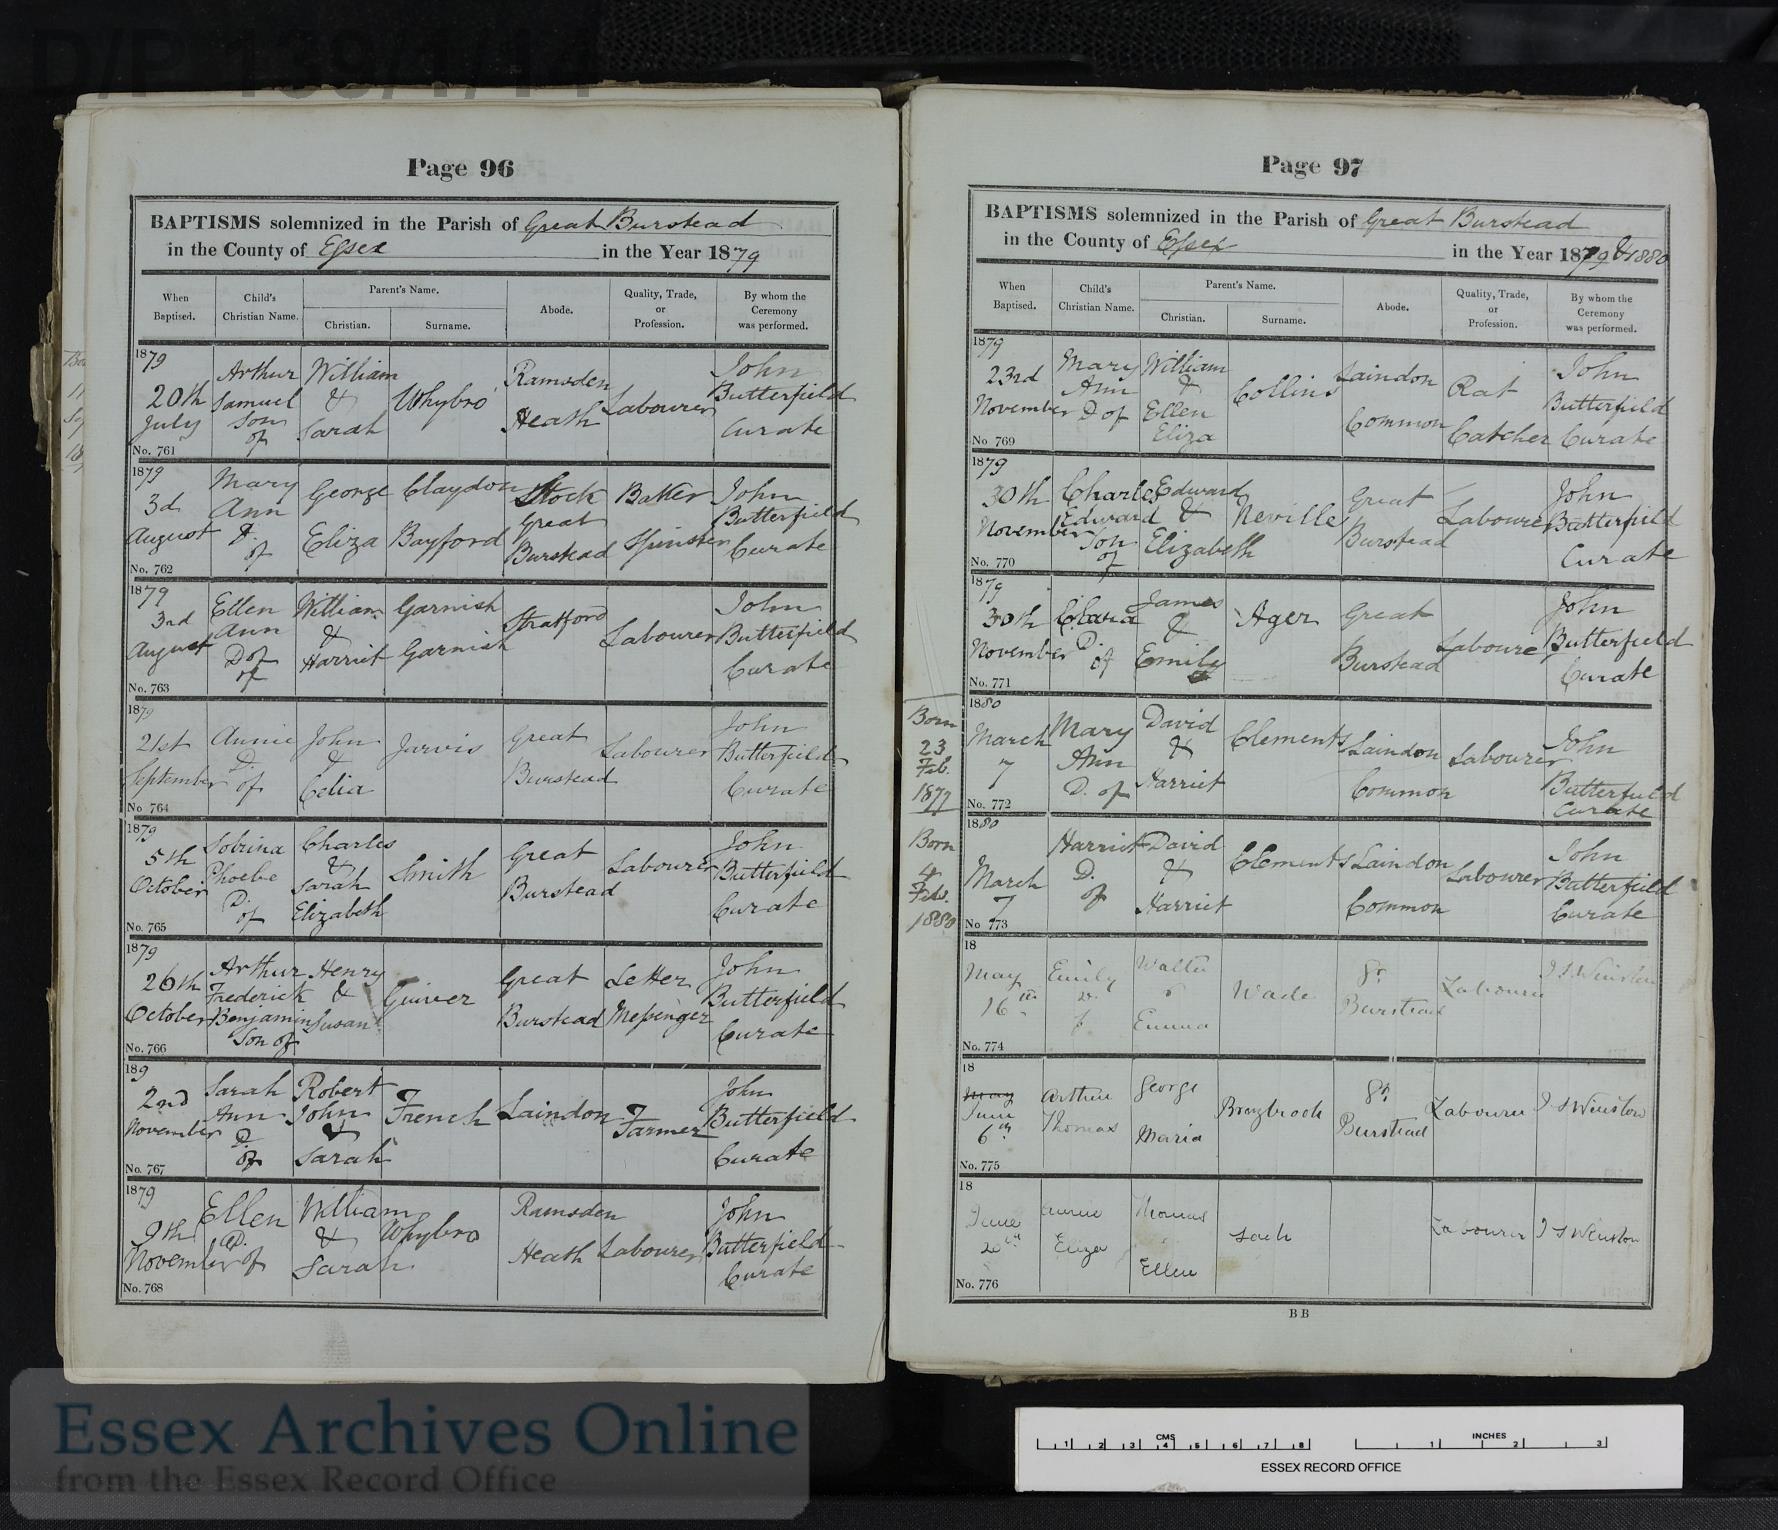 D/P 139/1/14
Page 96
BAPTISMS solemnized in the Parish of Great Burstead
in the County of Essex in the Year 1879
When Baptised.
Child's Christian Name.
Parent's Name.
Christian.
Surname.
Abode.
Quality, Trade, or Profession.
By whom the Ceremony was performed.
1879 20th July No. 761
Arthur Samuel Son of
William & Sarah
Whybro
Ramsden Heath
Labourer
John Butterfield Curate
1879 3d August No. 762
Mary Ann D. of
George Eliza
Claydon Bayford
Stock Great Burstead
Baker Spinster
John Butterfield Curate
1879 3rd August No. 763
Ellen Ann D of of
William & Harriet
Garnish Garnish
Stratford
Labourer
John Butterfield Curate
1879 21st September No 764
Annie D. of
John & Celia
Jarvis
Great Burstead
Labourer
John Butterfield Curate
1879 5th October No. 765
Sobrina Phoebe D. of
Charles & Sarah Elizabeth
Smith
Great Burstead
Labourer
John Butterfield Curate
1879 26th October No. 766
Arthur Frederick Benjamin Son of
Henry & Susan
Guiver
Great Burstead
Letter Messenger
John Butterfield Curate
189 2nd November No. 767
Sarah Ann D. of
Robert John & Sarah
French
Laindon
Farmer
John Butterfield Curate
1879 9th November No. 768
Ellen D. of
William & Sarah
Whybro
Ramsden Heath
Labourer
John Butterfield Curate
Page 97
BAPTISMS solemnized in the Parish of Great Burstead
in the County of Essex in the Year 1879 & 1880
When Baptised.
Child's Christian Name.
Parent's Name.
Christian.
Surname.
Abode.
Quality, Trade, or Profession.
By whom the Ceremony was performed.
1879 23rd November No 769
Mary Ann D of
William & Ellen Eliza
Collins
Laindon Common
Rat Catcher
John Butterfield Curate
1879 30th November No. 770
Charles Edward Son of
Edward & Elizabeth
Neville
Great Burstead
Labourer
John Butterfield Curate
1879 30th November No. 771
Clara D. of
James & Emily
Ager
Great Burstead
Labourer
John Butterfield Curate
Born 23 Feb. 1877
1880 March 7 No. 772
Mary Ann D. of
David & Harriet
Clements
Laindon Common
Labourer
John Butterfield Curate
Born 4 Feb. 1880
1880 March 7 No 773
Harriet D. of
David & Harriet
Clements
Laindon Common
Labourer
John Butterfield Curate
18 May 16th No. 774
Emily D. of
Walter & Emma
Wade
Gt. Burstead
Labourer
J S Winston
18 May June 6th No. 775
Arthur Thomas
George Maria
Braybrook
Gt. Burstead
Labourer
J S Winston
18 June 20th No. 776
Annie Eliza
Thomas Ellen
Sach
Labourer
J S Winston
B B
Essex Archives Online
from the Essex Record Office
CMS
1 2 3 4 5 6 7 8
INCHES
1 2 3
ESSEX RECORD OFFICE